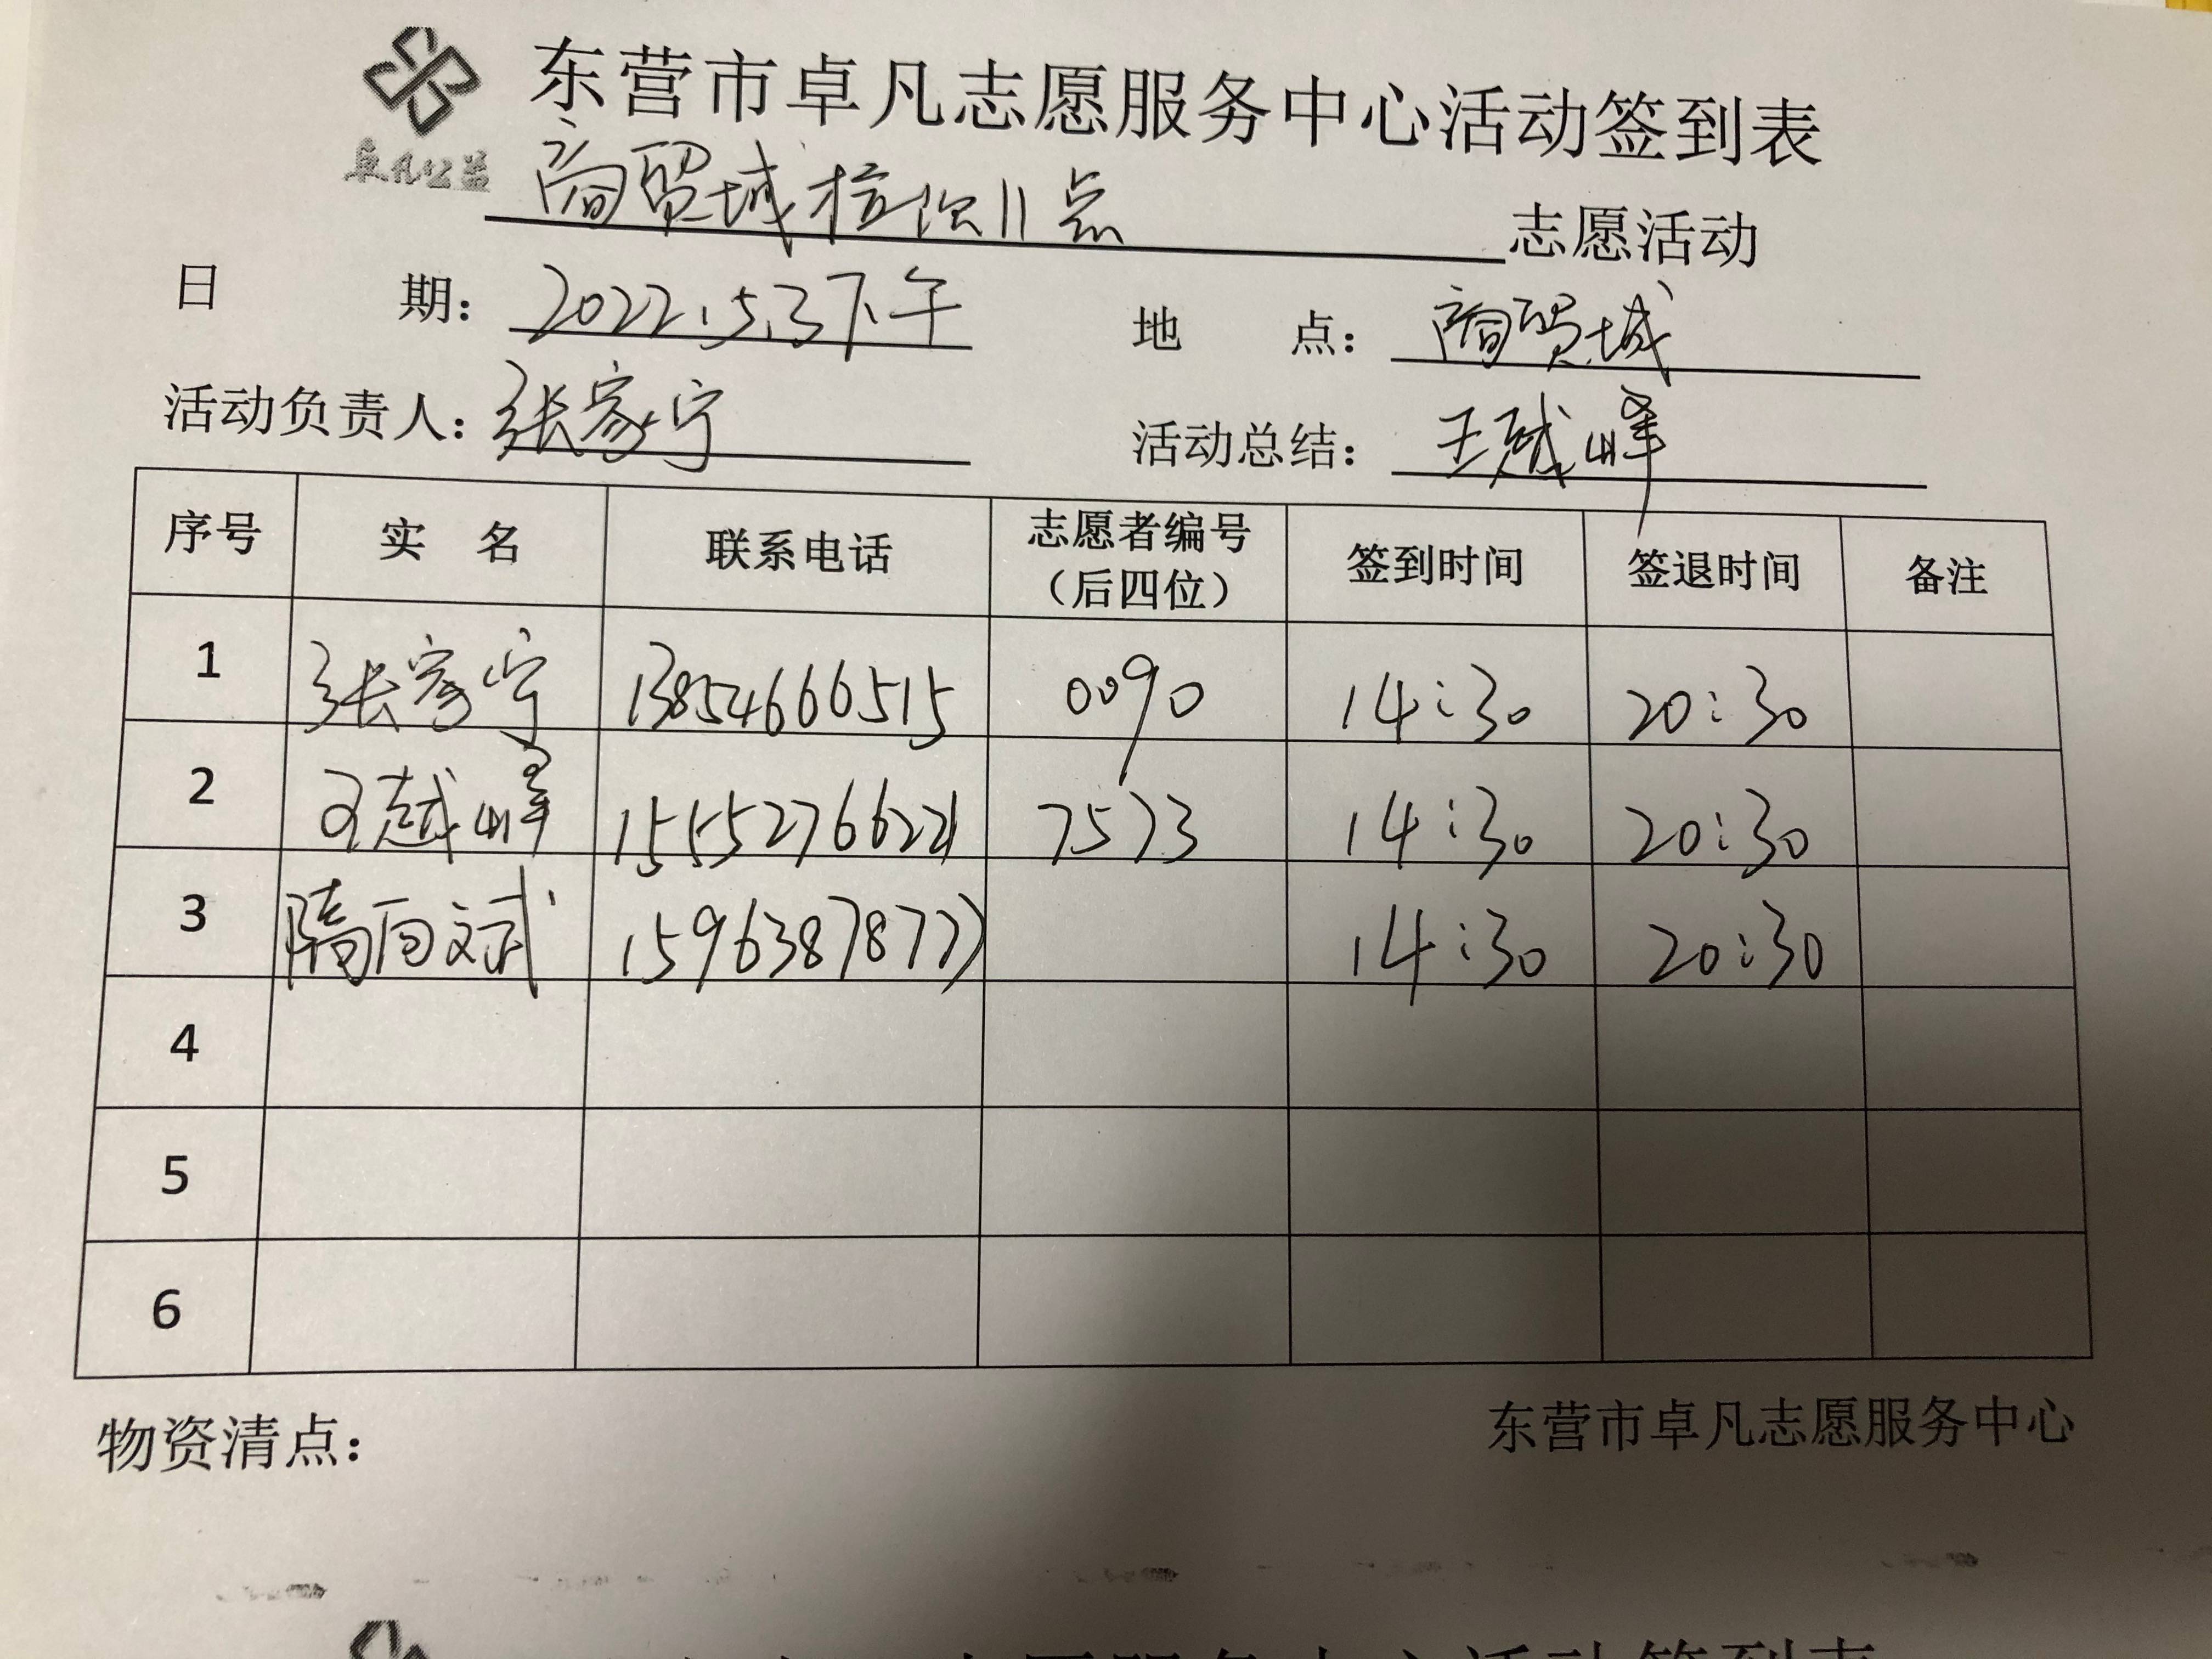 东营市卓凡志愿服务中心活动签到表
卓凡公益
商贸城检测11点 志愿活动
日 期：2022.5.3下午 地 点：商贸城
活动负责人：张家宁 活动总结：王越峰
序号 实 名 联系电话 志愿者编号（后四位） 签到时间 签退时间 备注
1 张家宁 13854666515 0090 14:30 20:30
2 王越峰 15552766221 7573 14:30 20:30
3 隋百斌 15963878777 14:30 20:30
4
5
6
物资清点： 东营市卓凡志愿服务中心